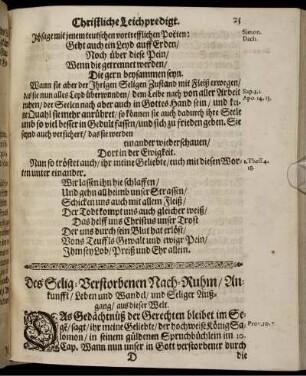 Christliche Leichpredigt. 23
Ich sage mit jenem teutschen vortrefflichen Poëten: Simon. Dach.
Geht auch ein Leyd auff Erden/
Noch über diese Pein/
Wenn die getrennet werden/
Die gern beysammen seyn.
Wann sie aber der Ihrigen Seligen Zustand mit Fleiß erwegen/
das sie nun alles Leyd überwunden/ dem Leibe nach von aller Arbeit
ruhen/ der Seelen nach aber auch in Gottes Hand sein/ und kei- Sap. 3. 1.
ne Quahl sie mehr anrühret: so können sie auch dadurch ihre Seele Apo. 14. 13.
umb so viel besser in Gedult fassen/ und sich zu frieden geben. Sie
seynd auch versichert/ das sie werden
einander wiederschauen/
Dort in der Ewigkeit.
Nun so tröstet auch/ ihr meine Geliebte/ euch mit diesen Wor- 1. Thess. 4. 18.
ten unter einander.
Wir lassen ihn hie schlaffen/
Und gehn all heimb unser Strassen/
Schicken uns auch mit allem Fleiß/
Der Todt kompt uns auch gleicher weiß/
Das helff uns Christus unser Trost
Der uns durch sein Blut hat erlöst/
Vons Teuffls Gewalt und ewigr Pein/
Ihm sey Lob/ Preiß und Ehr allein.
Des Selig-Verstorbenen Nach-Ruhm/ An-
kunfft/ Leben und Wandel/ und Seliger Auß-
gang/ aus dieser Welt.
Das Gedächtnüß der Gerechten bleibet im Se-
gē/ sagt/ ihr meine Geliebte/ der hochweise König Sa- Prov. 10. 7.
lomon/ in seinem güldenen Spruchbüchlein im 10.
Cap. Wann nun unser in Gott verstorbener durch
D die